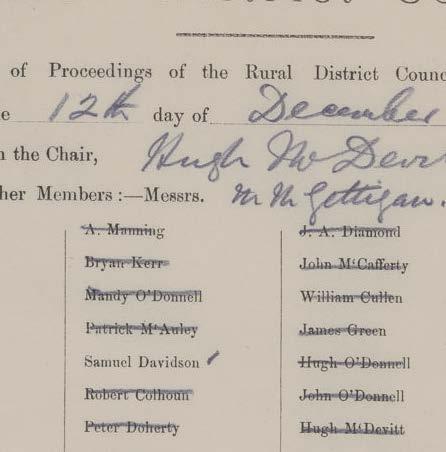 of Proceedings of the Rural District Counc
e 12th day of December
n the Chair, Hugh McDevi
her Members :—Messrs. M McGettigan.
A. Manning
Bryan Kerr
Mandy O'Donnell
Patrick M'Auley
Samuel Davidson
Robert Colhoun
Peter Doherty
J. A. Diamond
John M'Cafferty
William Cullen
James Green
Hugh O'Donnell
John O'Donnell
Hugh M'Devitt